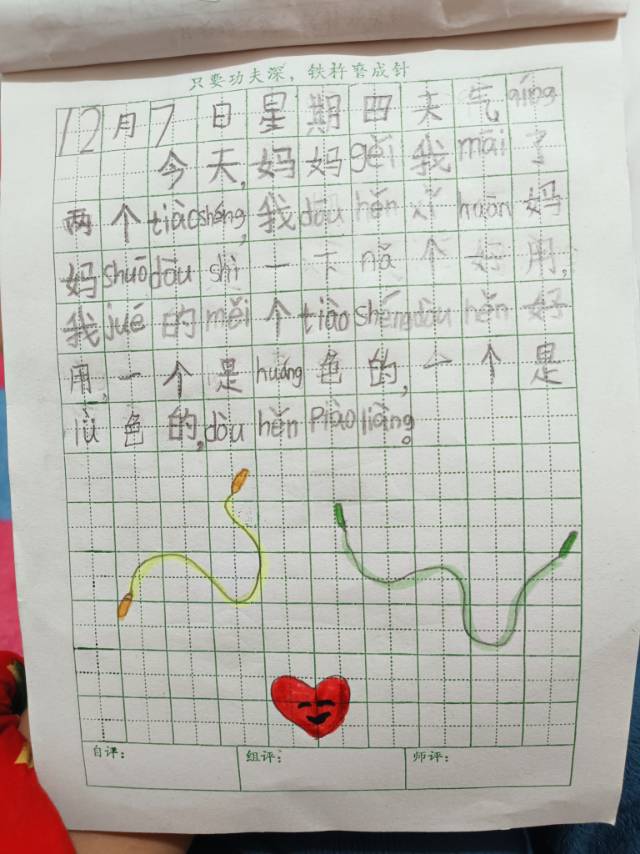 只要功夫深，铁杵磨成针
12月7日星期四天气qíng
今天,妈妈gěi我mǎi了
两个tiàoshéng,我dōu hěn xǐ huān妈
妈shuō dōu shì一下nǎ个好用,
我jué的měi个tiào shéng dōu hěn好
用,一个是huáng色的,一个是
lǜ色的,dōu hěn Piào liàng。
自评：
组评：
师评：